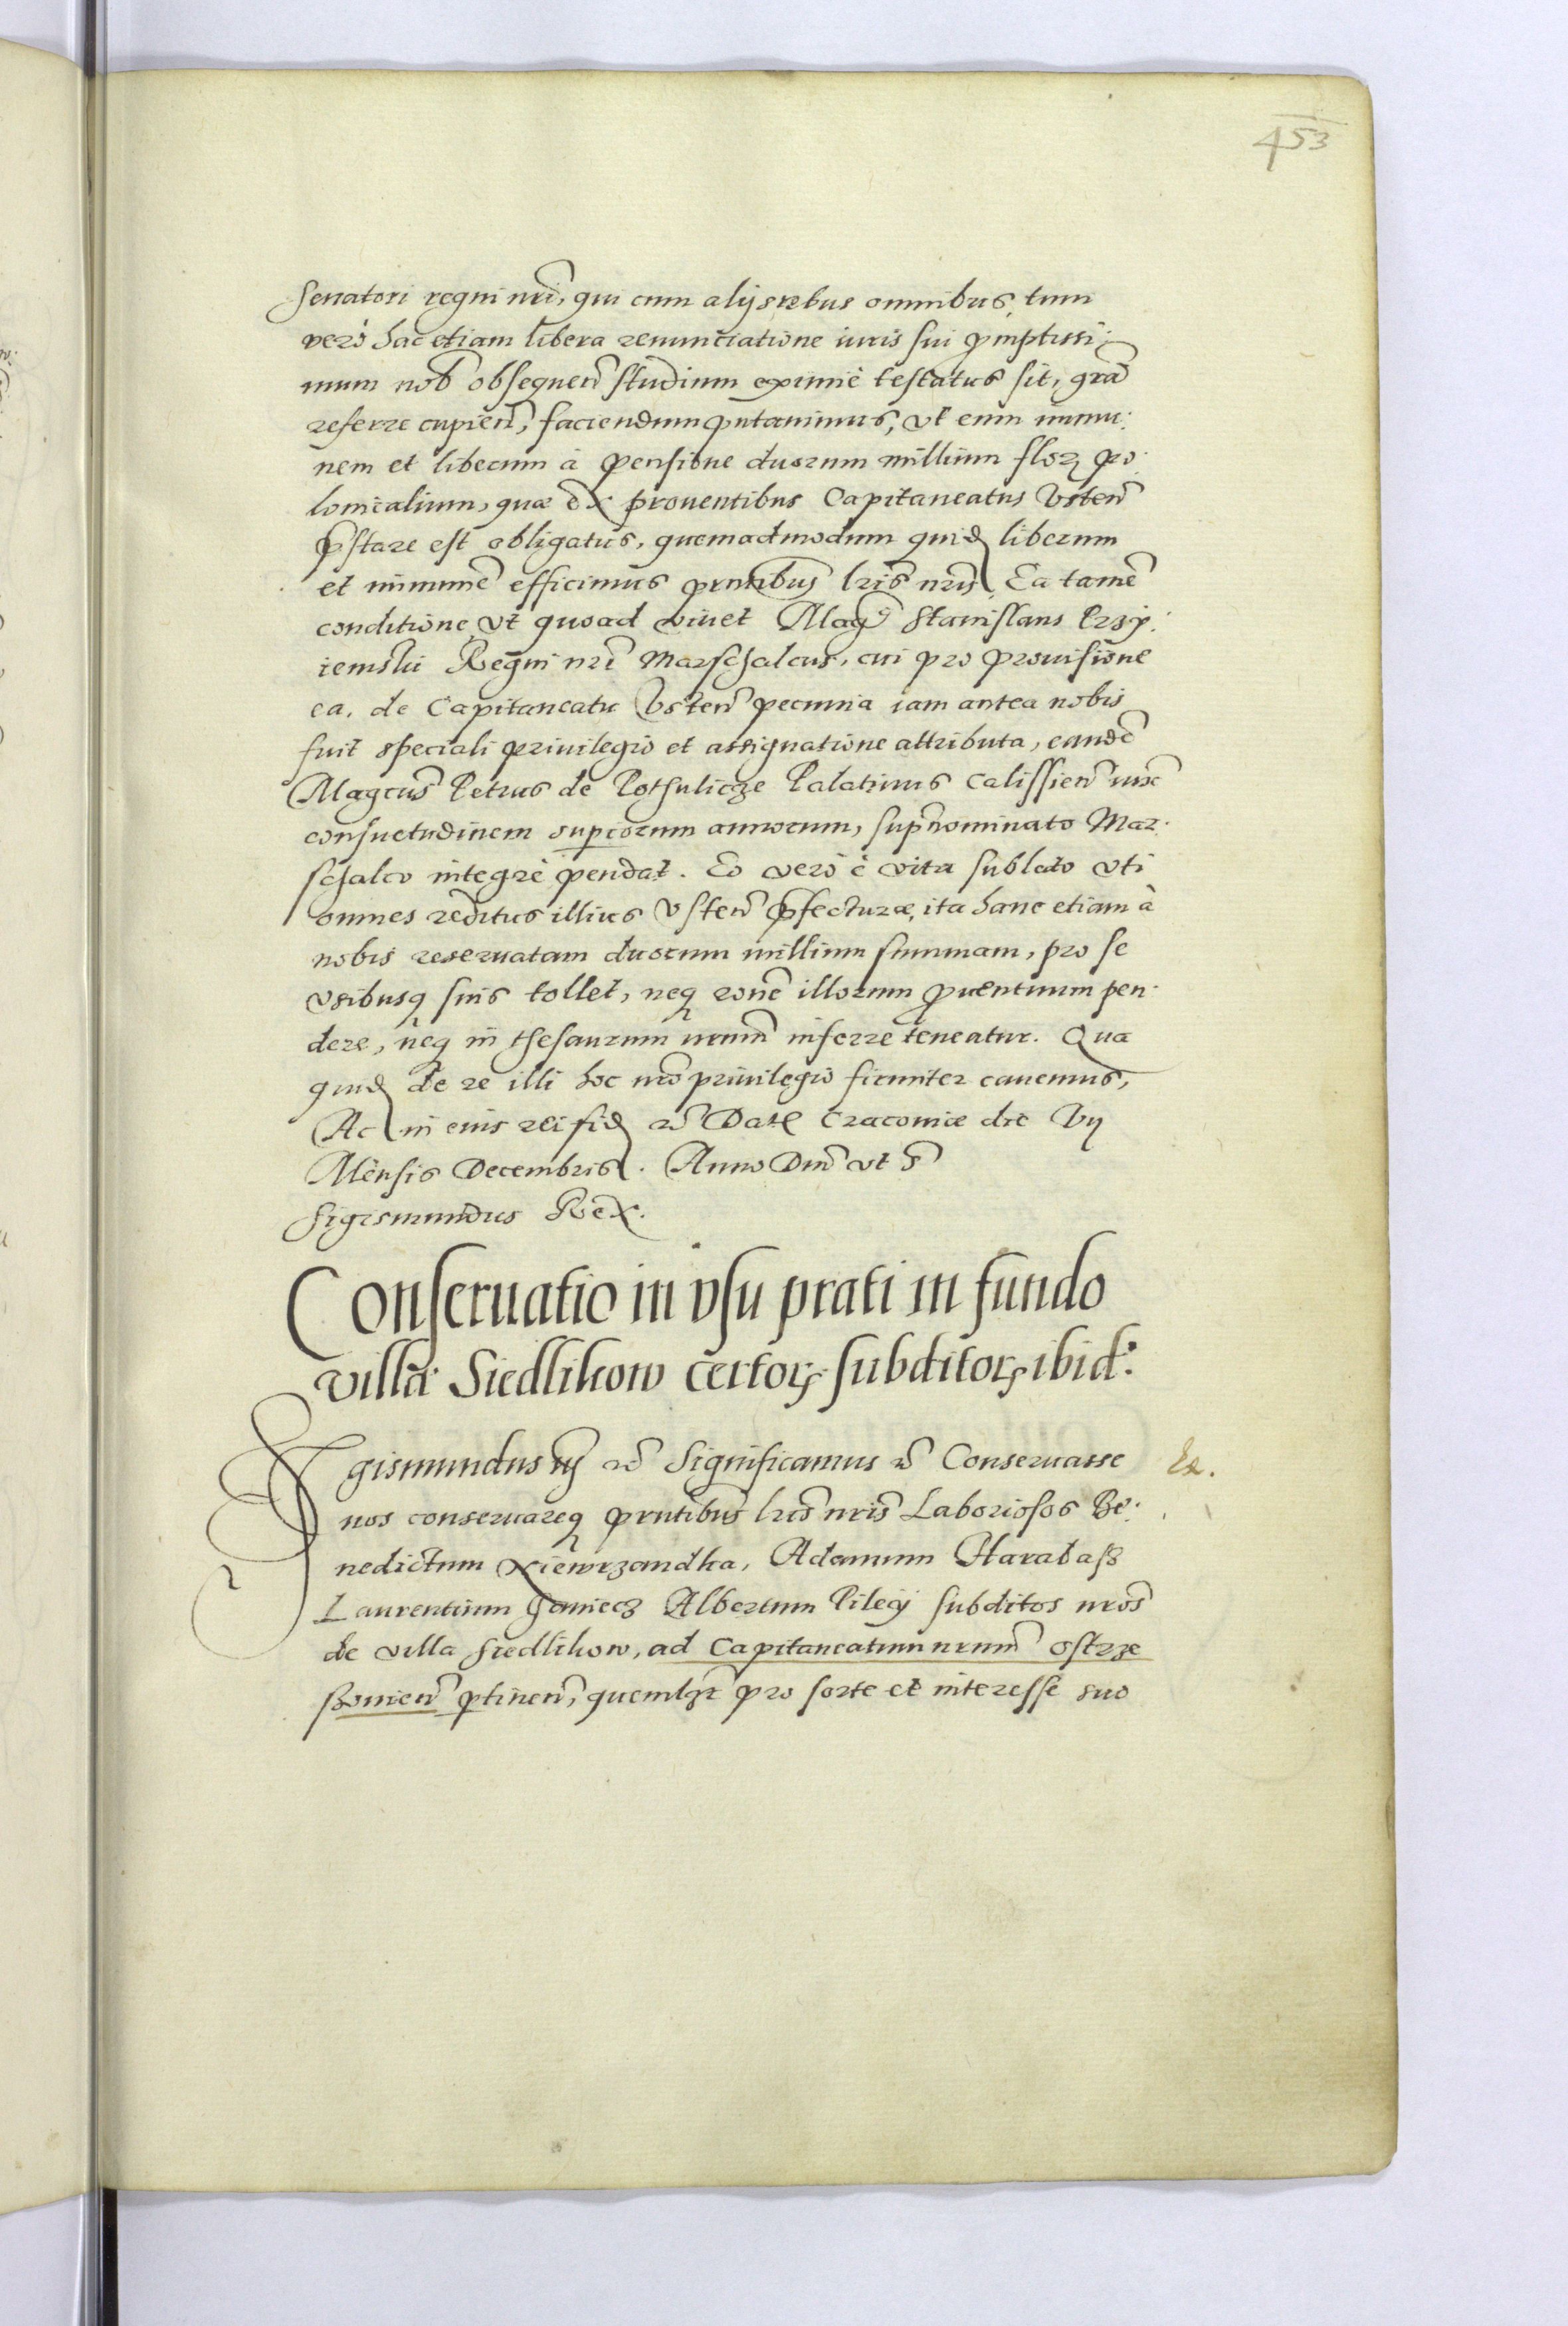 453
senatori regni nri, qui cum alijs rebus omnibus, tum
vero hac etiam libera renunciatione iuris sui promptissi:
mum nob obsequen studium eximiè testatus sit, gram
referre cupien, faciendum putauimus, vt eum immu:
nem et liberum à pensione duorum millium flor po:
lonicalium, quæ ex prouentibus Capitaneatus Vsten
pstare est obligatus, quemadmodum quid liberum
et immune efficimus pntibus lris nris. Ea tamè
conditione vt quoad viuet Mag Stanislaus Przy:
iemski Regni nri Marschalcus, cui pro prouisione
ea, de Capitaneatu Vsten pecunia iam antea nobis
fuit speciali priuilegio et assignatione attributa, eandè
Magcus Petrus de Pothulicze Palatinus Calissien iuxè
consuetudinem superiorum annorum, supnominato Mar:
schalco integrè pendat. Eo verò è vita sublato vti
omnes reditus illius Vsten pfecturæ, ita hanc etiam à
nobis reseruatam duorum millium summam, pro se
vsibusq suis tollet, neq ronè illorum prouentuum pen:
dere, neq in thesaurum nrum inferre teneatur. Qua
quid de re illi hoc nro priuilegio firmiter cauemus,
Ac in eius rei fid Dat Cracouiæ die Vij
Mensis Decembris. Anno Dni vt s
Sigismundus Rex.
Conseruatio in vsu prati in fundo
villæ Siedlikow certor subditor ibid:
Sigismundus iij Significamus Conseruasse
Ex.
nos conseruareq pntibus lris nris Laboriosos Be:
nedictum Xiewrzandka, Adamum Harabasz
Laurentium Janiecz Albertum Pilecy subditos nros
de villa Siedlikow, ad Capitaneatum nrum Ostrze
szouien ptinen, quemlzt pro sorte et interesse suo